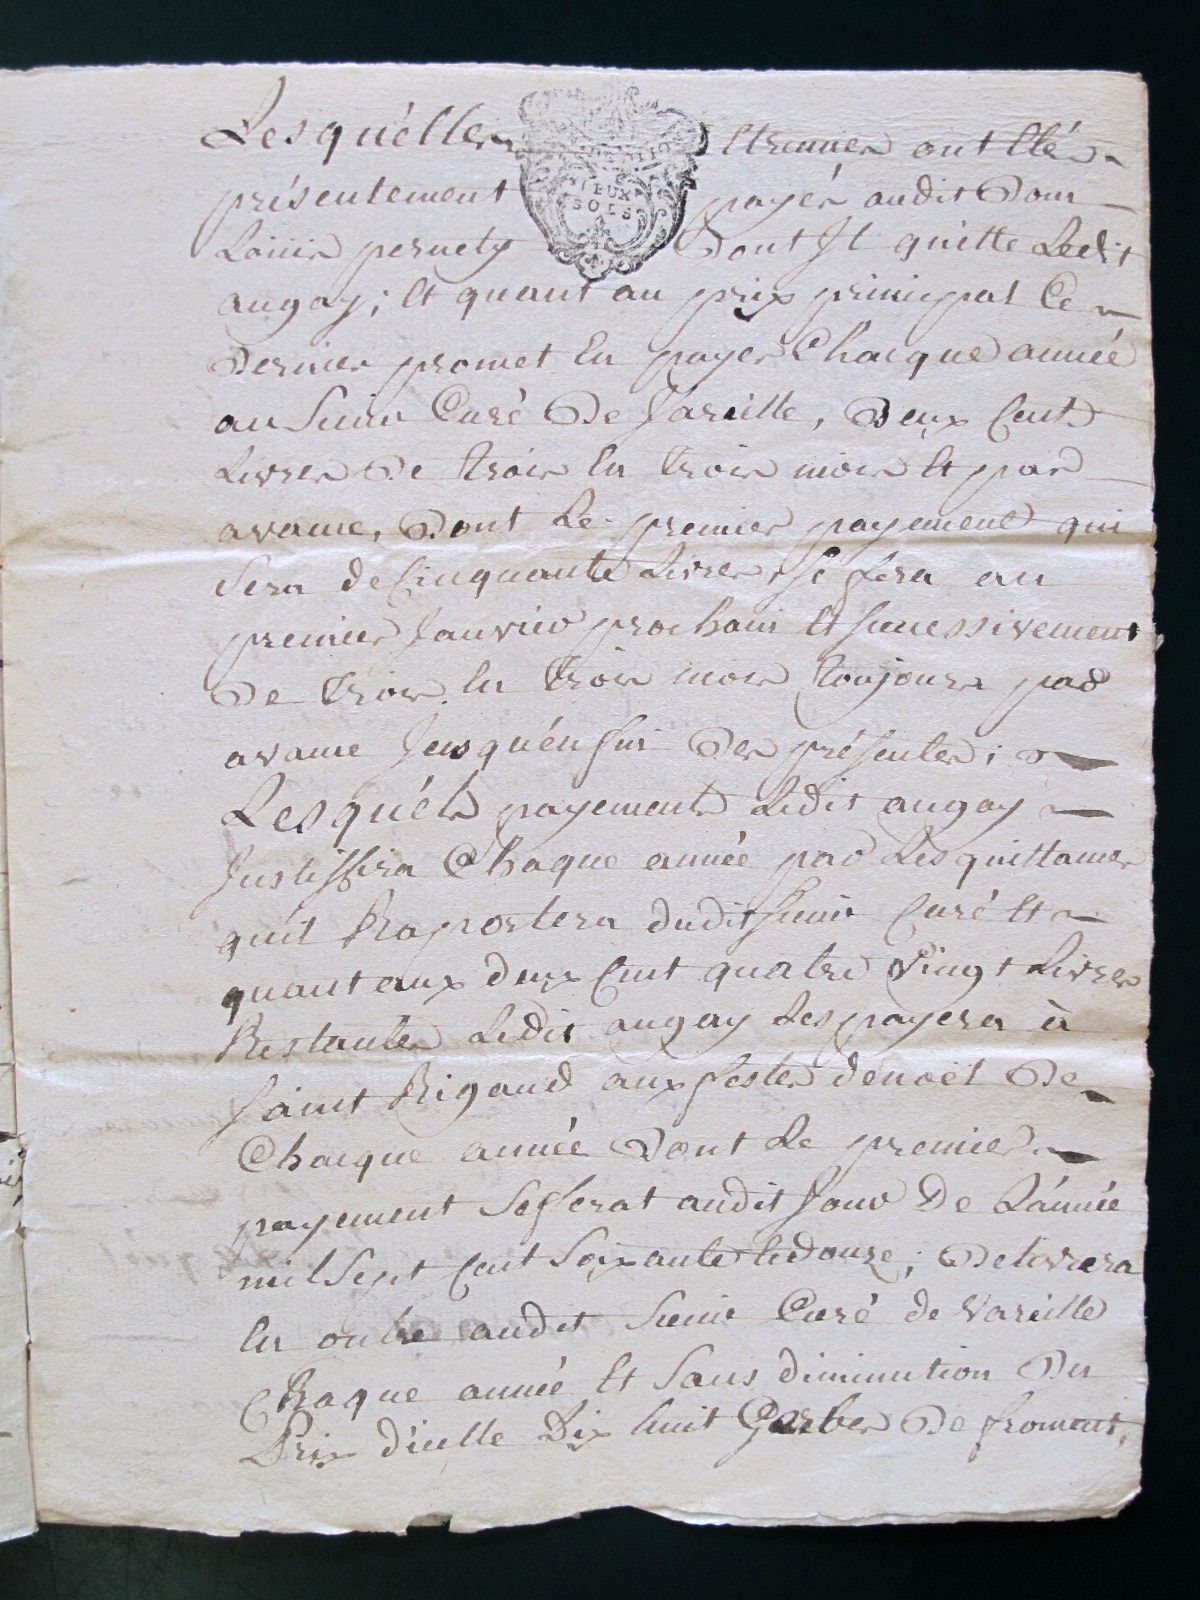 Lesquelles Etrennes ont Eté
présentement payés audit Dom
DEUX
SOLS
Louis pernety Dont Il quitte Ledit
augay; Et quant au prix principal Ce
Dernier promet En payer Chacque année
au Sieur Curé De Vareille, Deux Cent
Livres De trois En trois mois Et par
avance, Dont Le premier payement qui
sera de Cinquante Livres se fera au
premier Janvier prochain Et successivement
De trois En trois mois toujours par
avance Jusqu'én fin Des présentes;
Lesquéls payements Ledit augay
Justiffira Chaque année par Les quittances
qu'il Raportera dudit sieur Curé Et
quant aux deux Cent quatre Vingt Livres
Restantes Ledit augay Les payera à
saint Rigaud aux festes de noël De
Chacque année Dont Le premier
payement se fferat audit Jour De L'année
mil Sept Cent Soixante Et douze; Delivrera
En outre audit Sieur Curé de Vareille
Chaque année Et Sans diminution Du
Prix d'icelle Dix huit Gerbes De froment,